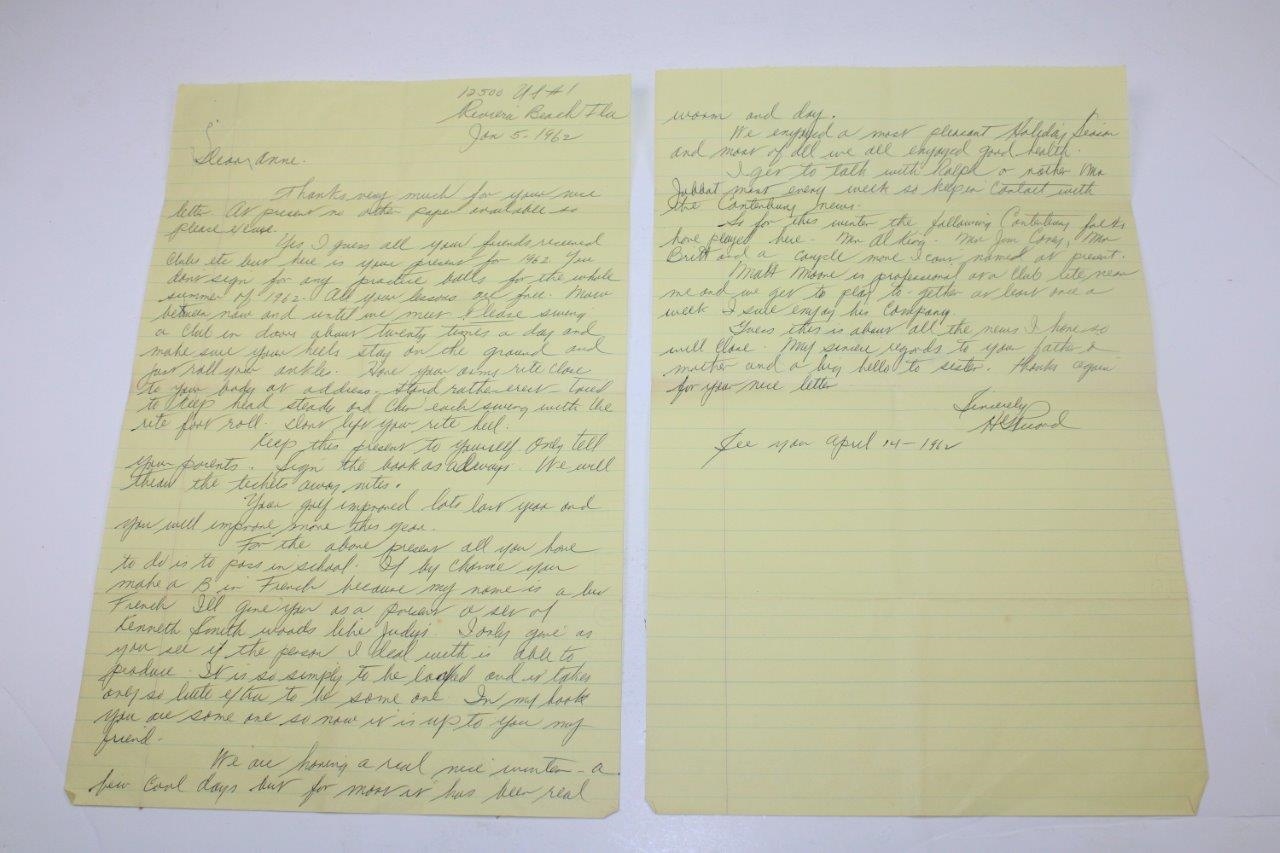 12500 US #1
Riviera Beach Fla
Jan 5 - 1962
Dear Anne.
Thanks very much for your nice
letter. At present no other paper available so
please excuse.
Yes I guess all your friends received
clubs etc but here is your present for 1962. You
dont sign for any practice balls for the whole
summer of 1962. All your lessons are free. Now
between now and until we meet Please swing
a club in doors about twenty times a day and
make sure your heels stay on the ground and
just roll your ankles. Have your arms rite close
to your body at address, stand rather erect -
to keep head steady and each swing with the
rite foot roll. Dont lift your rite heel.
Keep this present to yourself. Only tell
your parents. Sign the book as always. We will
throw the tickets away nites.
Your golf improved lots last year and
you will improve more this year.
For the above present all you have
to do is to pass in school. If by chance you
make a B in French because my name is a bit
French I'll give you as a present a set of
Kenneth Smith woods like Judy's. I only give as
you see if the person I deal with is able to
produce. It is so simply to be and it takes
only so little extra to be some one. In my book
you are some one so now it is up to you my
friend.
We are having a real nice winter - a
few cool days but for most it has been real
warm and dry.
We enjoyed a most pleasant Holiday Season
and most of all we all enjoyed good health.
I get to talk with Ralph or rather Mr
most every week so keep in contact with
the Canterbury news.
As for this winter the following Canterbury folks
have played here. Mr Al King. Mr Jim Mr
Britt and a couple more I cant named at present.
Matt Moore is professional at a club rite near
me and we get to play to-gether at least once a
week I sure enjoy his company.
Guess this is about all the news I have so
will close. My sincere regards to your father &
mother and a big hello to sister. Thanks again
for your nice letter
Sincerely
See you April 14 - 1962